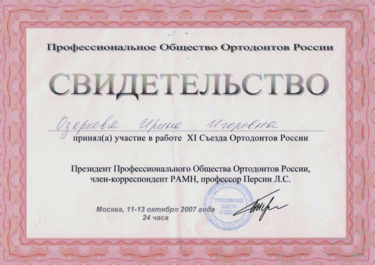 Профессиональное Общество Ортодонтов России
СВИДЕТЕЛЬСТВО
Озеркова Ирина Игоревна
принял(а) участие в работе XI Съезда Ортодонтов России
Президент Профессионального Общества Ортодонтов России,
член-корреспондент РАМН, профессор Персин Л.С.
Москва, 11-13 октября 2007 года
24 часа